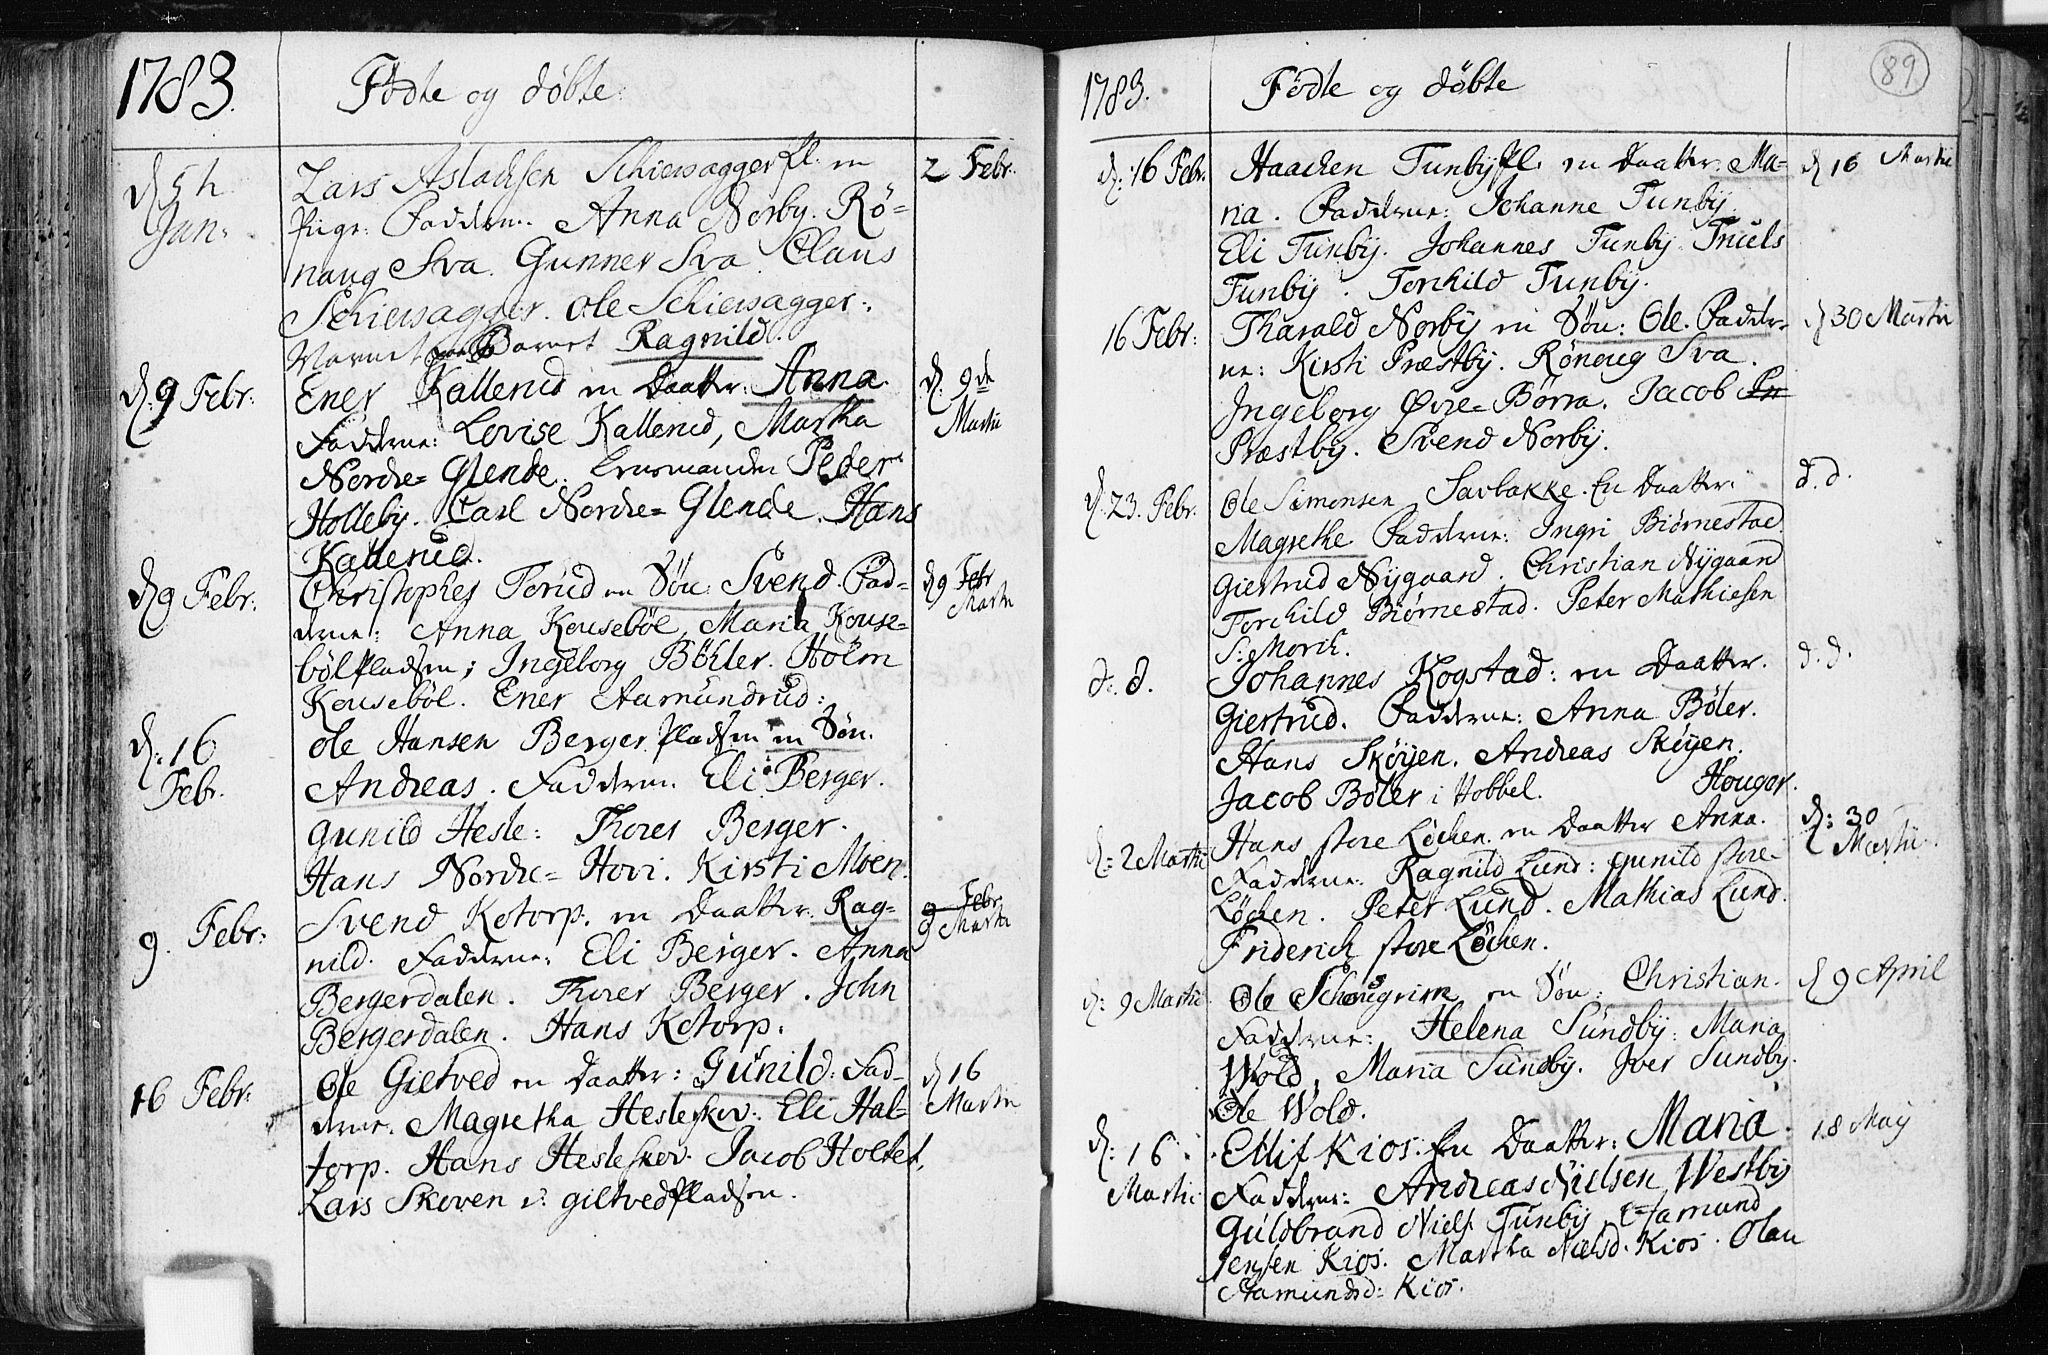 1783.
Fødte og døbte.
d 5th Jan: Lars Aslachsen Schiersaggerpl: en 2 Febr:
Pige: Faddere. Anna Norby. Rø=
naug Sva. Gunner Sva. Claus
Schiersagger. Ole Schiersagger:
Navnet Barnet Ragnild.
d: 9 Febr: Ener Kallerud en Daatter: Anna. d. 9de Martii
Fadderne: Lovise Kallerud, Martha
Nordre=Glende. Lensmanden Peder
Holleby. Carl Nordre=Glende. Hans
Kallerud.
d 9 Febr: Christopher Torud en Søn: Svend. Fad= d 9 Febr Martii
derne: Anna Kousebøl, Maria Kouse=
bølpladsen; Ingeborg Bøhler. Holm
Kousebøl. Ener Aamundrud:
d: 16 Febr. Ole Hansen Berger pladsen en Søn.
Andreas. Faddere. Eli Berger.
Gunild Hesle: Thorer Berger.
Hans Nordre=Hovi. Kirsti Moen.
9. Febr: Svend Kotorp. en Daatter. Rag= 9 Febr. 9 Martii
nild. Fadderne: Eli Berger. Anna
Bergerdalen. Thorer Berger. John
Bergerdalen. Hans Kotorp.
16 Febr: Ole Gietved en Daatter: Gunild: Fad= d 16 Martii
derne. Magretha Hesleskov: Eli Hal=
torp. Hans Hesleskov. Jacob Holtet,
Lars Skoven v: gietvedpladsen.
89
1783.
Fødte og døbte
d: 16 Febr. Haachen Tunbypl: en Daatter: Ma= d 16 Martii
ria. Fadderne: Johanne Tunby.
Eli Tunby. Johannes Tunby. Truels
Tunby. Torchild Tunby.
16 Febr: Tharald Norby en Søn: Ole. Fadder= d 30 Martii
ne: Kirsti Præstby. Rønoug Sva.
Ingeborg Øvre=Børra. Jacob Pr=
Præstby. Svend Norby.
d. 23. Febr. Ole Simonsen Savbakke. En Daatter: d. d.
Magrethe Fadderne: Ingri Biørnestad.
Giertrud Nygaard. Christian Nygaard
Torchild Biørnestad. Peter Mathiesen
S: Morck.
d: d. Johannes Kogstad: en Daatter. d. d.
Giertrud. Fadderne: Anna Bøler.
Hans Skøyen. Andreas Skøyen.
Jacob Bøler i Hobbel. Houger.
d: 2 Martii Hans store Løchen en Daatter Anna. d: 30 Martii.
Fadderne: Ragnild Lund: Gunild store=
Løchen. Peter Lund. Mathias Lund.
Friderich store Løchen.
d: 9 Martii Ole Schougrim en Søn: Christian. d 9 April
Fadderne: Helena Sundby: Maria
Wold, Maria Sundby. Iver Sundby.
Ole Wold.
d: 16 Martii Ellif Kios: En Daatter: Maria. 18 May
Fadderne: Andreas Nielsen Westby
Guldbrand Niels. Tunby, Aamund
Jensen Kios. Martha Nielsd. Kios. Olau
Aamundsd: Kios.